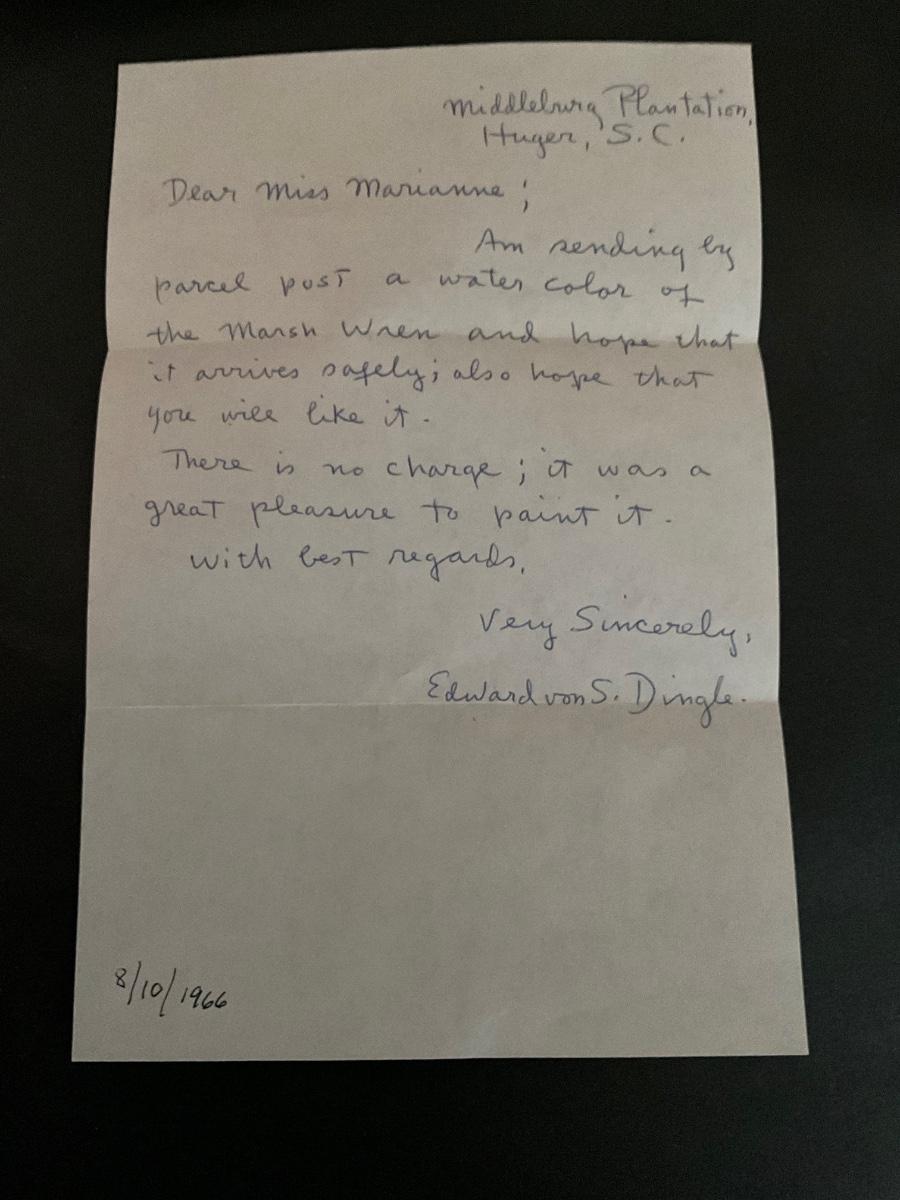 Middleburg Plantation,
Huger, S.C.
Dear Miss Marianne;
Am sending by
parcel post a water color of
the Marsh Wren and hope that
it arrives safely; also hope that
you will like it.
There is no charge; it was a
great pleasure to paint it.
With best regards,
Very Sincerely,
Edward von S. Dingle.
8/10/1966